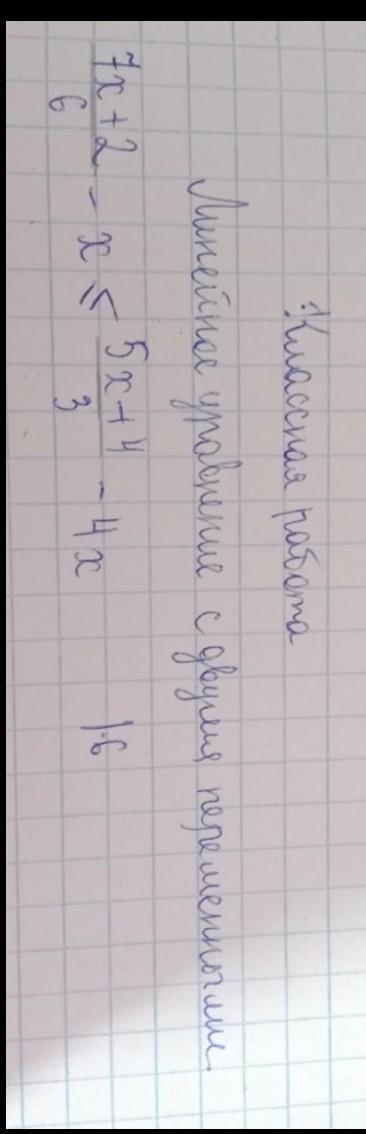 Классная работа
Линейное уравнение с двумя переменными.
(7x+2)/6 - x ⩽ (5x+4)/3 - 4x |·6